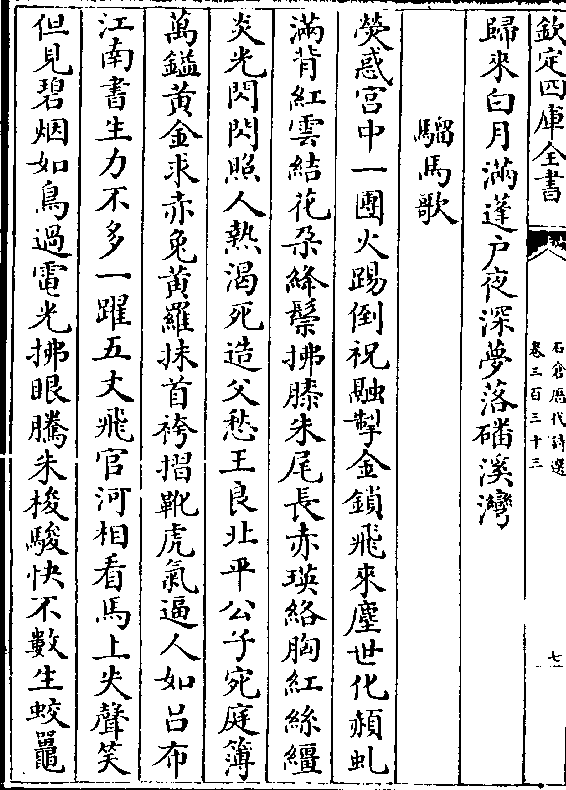 欽定四庫全書
石倉歷代詩選
卷三百三十三
七
歸來白月滿蓬户夜深夢落磻溪灣
騮馬歌
熒惑宮中一團火踢倒祝融掣金鎖飛來塵世化赬虬
滿背紅雲結花朵絳鬃拂膝朱尾長赤瑛絡胸紅絲繮
炎光閃閃照人熱渴死造父愁王良北平公子宛庭簿
萬鎰黄金求赤兔黄羅抹首袴摺靴虎氣逼人如吕布
江南書生力不多一躍五丈飛官河相看馬上失聲笑
但見碧烟如鳥過電光拂眼騰朱梭駿快不數生蛟鼉